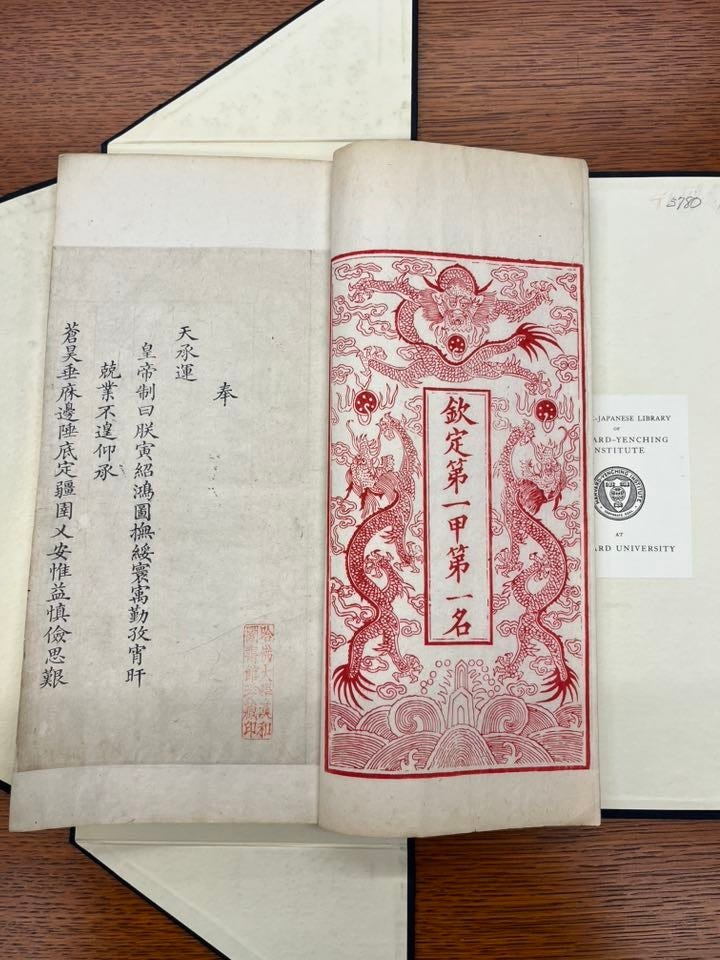 5780
-JAPANESE LIBRARY
OF
ARD-YENCHING
NSTITUTE
HARVARD-YENCHING INSTITUTE
AT
ARD UNIVERSITY
欽定第一甲第一名
奉
天承運
皇帝制曰朕寅紹鴻圖撫綏寰寓勤孜宵旰
兢業不遑仰承
蒼昊垂庥邊陲底定疆圉乂安惟益慎儉思艱
哈佛大學漢和
圖書館珍藏印